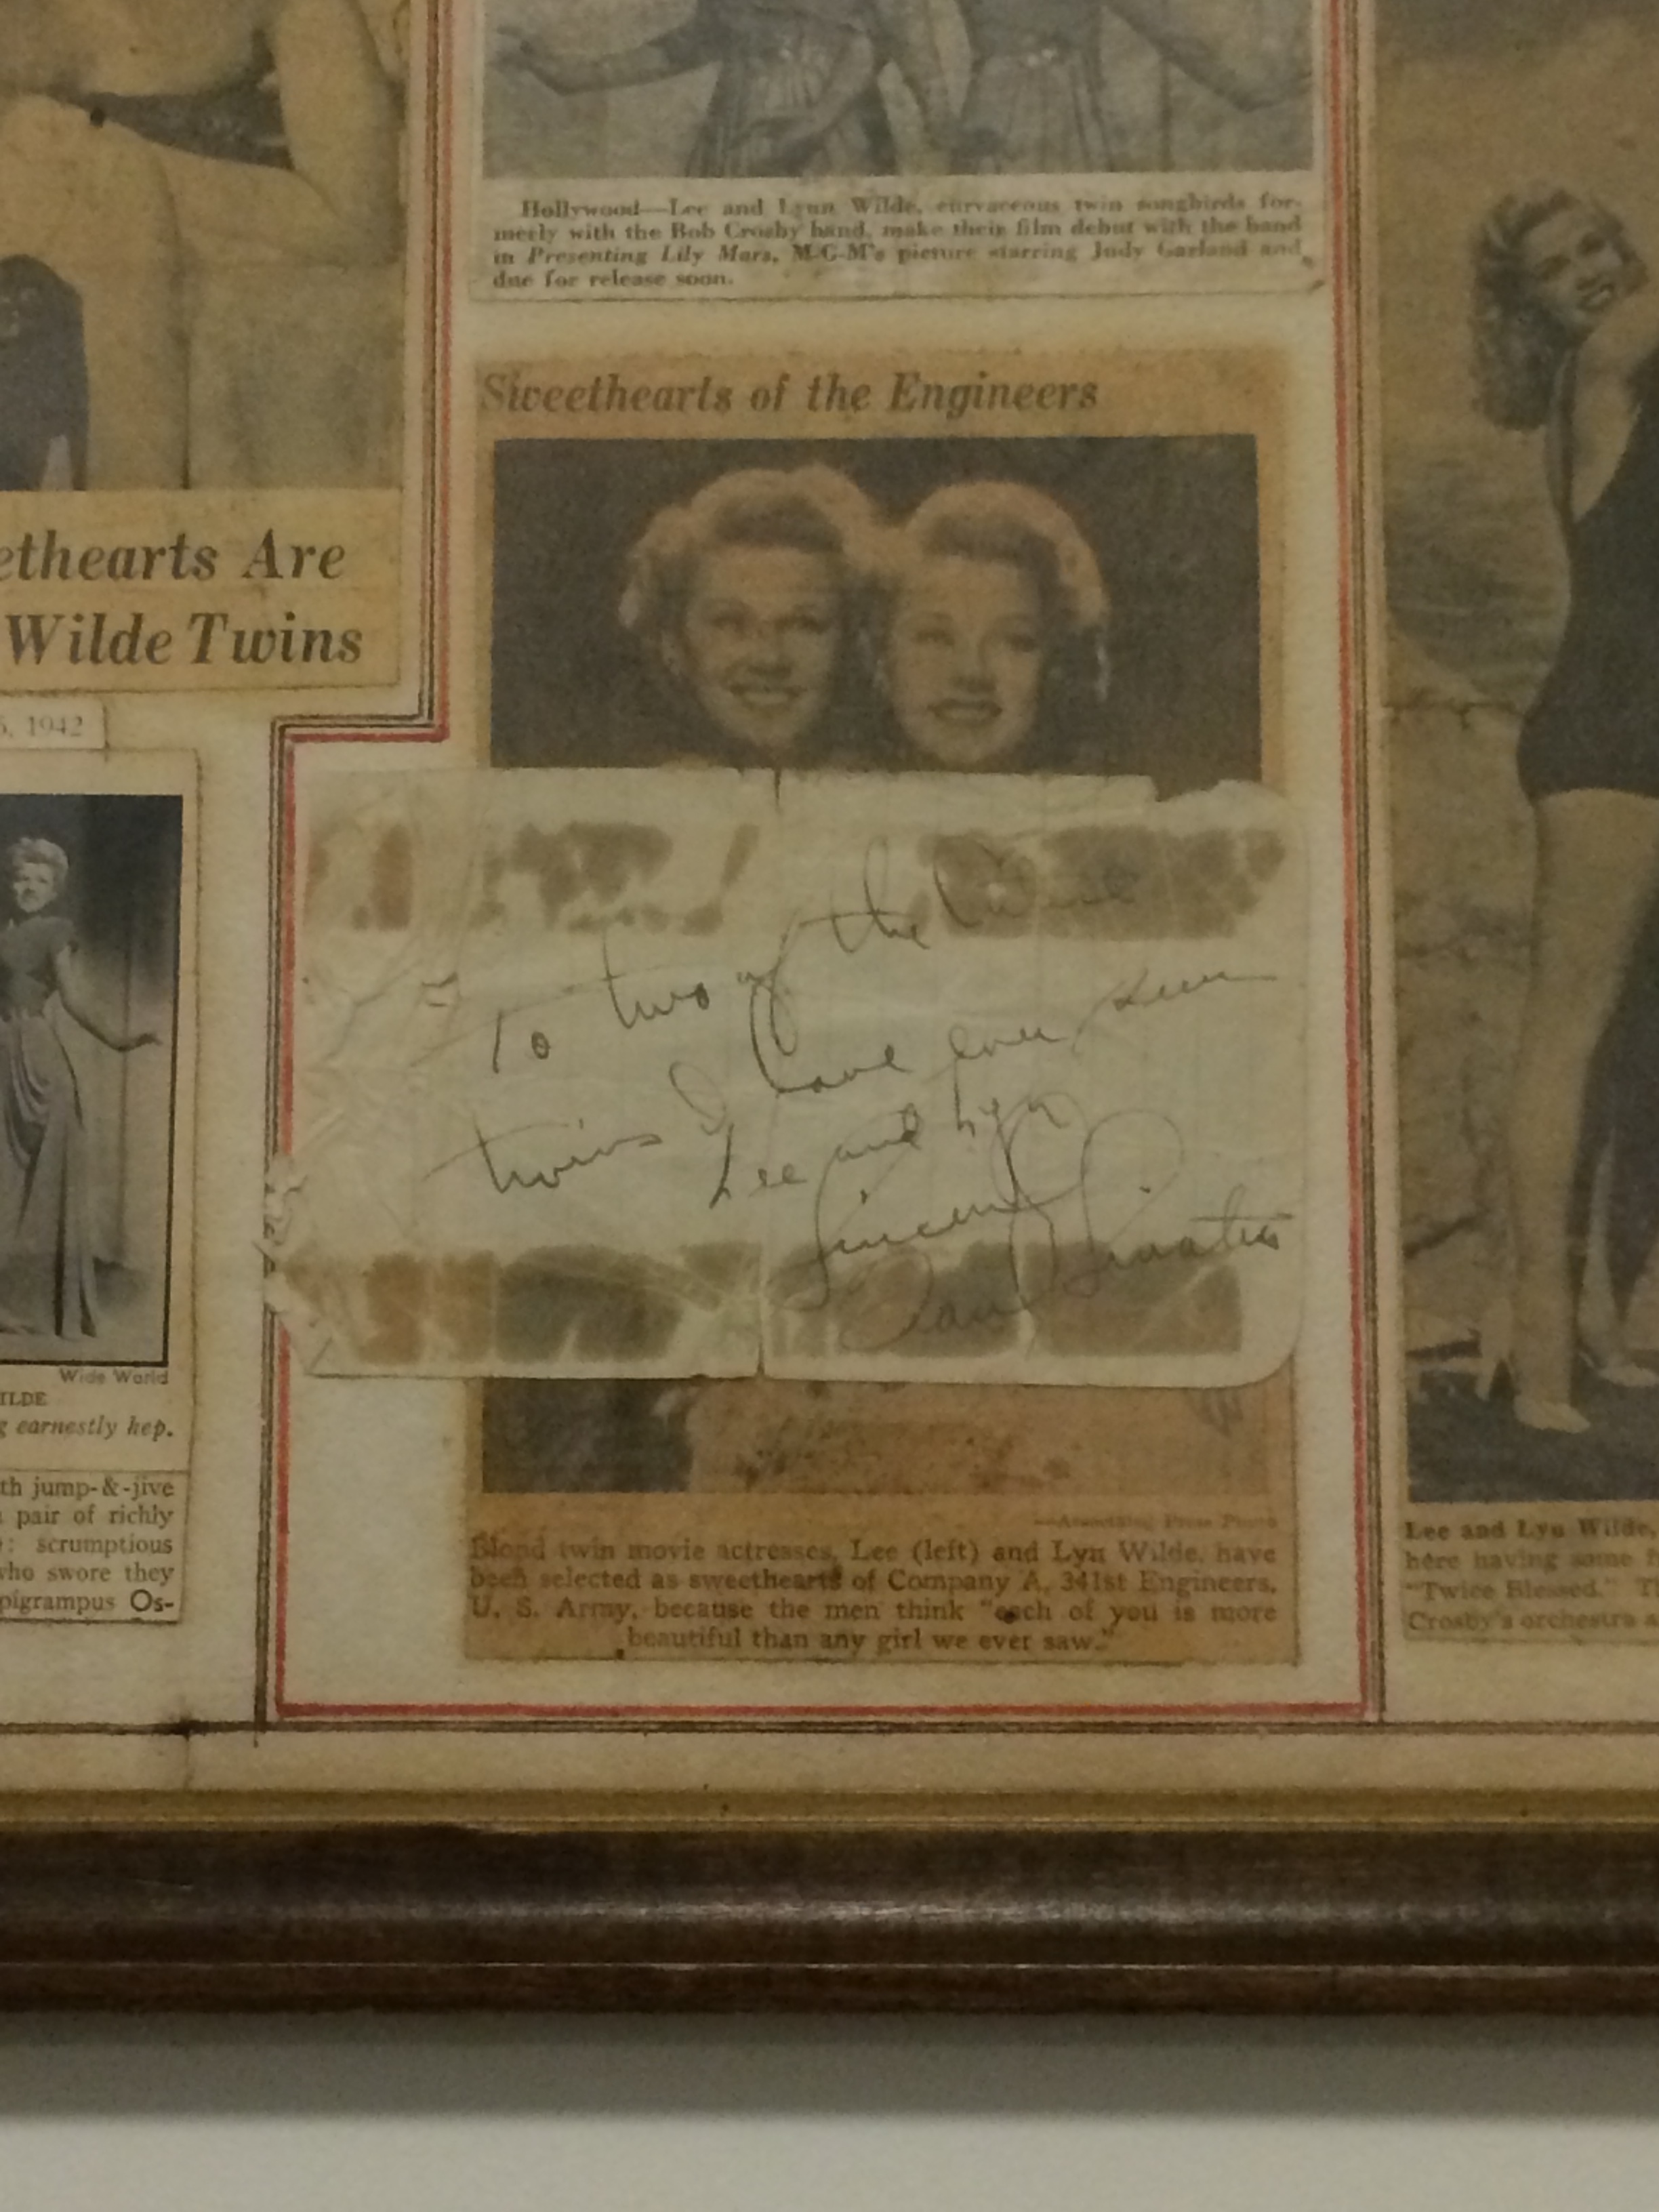 Hollywood—Lee and Lynn Wilde, curvaceous twin songbirds for-
merly with the Bob Crosby band, make their film debut with the band
in Presenting Lily Mars, M-G-M's picture starring Judy Garland and
due for release soon.
Sweethearts of the Engineers
ethearts Are
Wilde Twins
5, 1942
To two of the
twins I have ever seen
Lee and Lyn
Sincerely
Frank Sinatra
Wide World
ILDE
g earnestly hep.
th jump-&-jive
pair of richly
: scrumptious
who swore they
pigrampus Os-
—Associated Press Photo
Blond twin movie actresses, Lee (left) and Lyn Wilde, have
been selected as sweethearts of Company A, 341st Engineers,
U. S. Army, because the men think "each of you is more
beautiful than any girl we ever saw."
Lee and Lyn Wilde,
here having some f
"Twice Blessed." T
Crosby's orchestra a